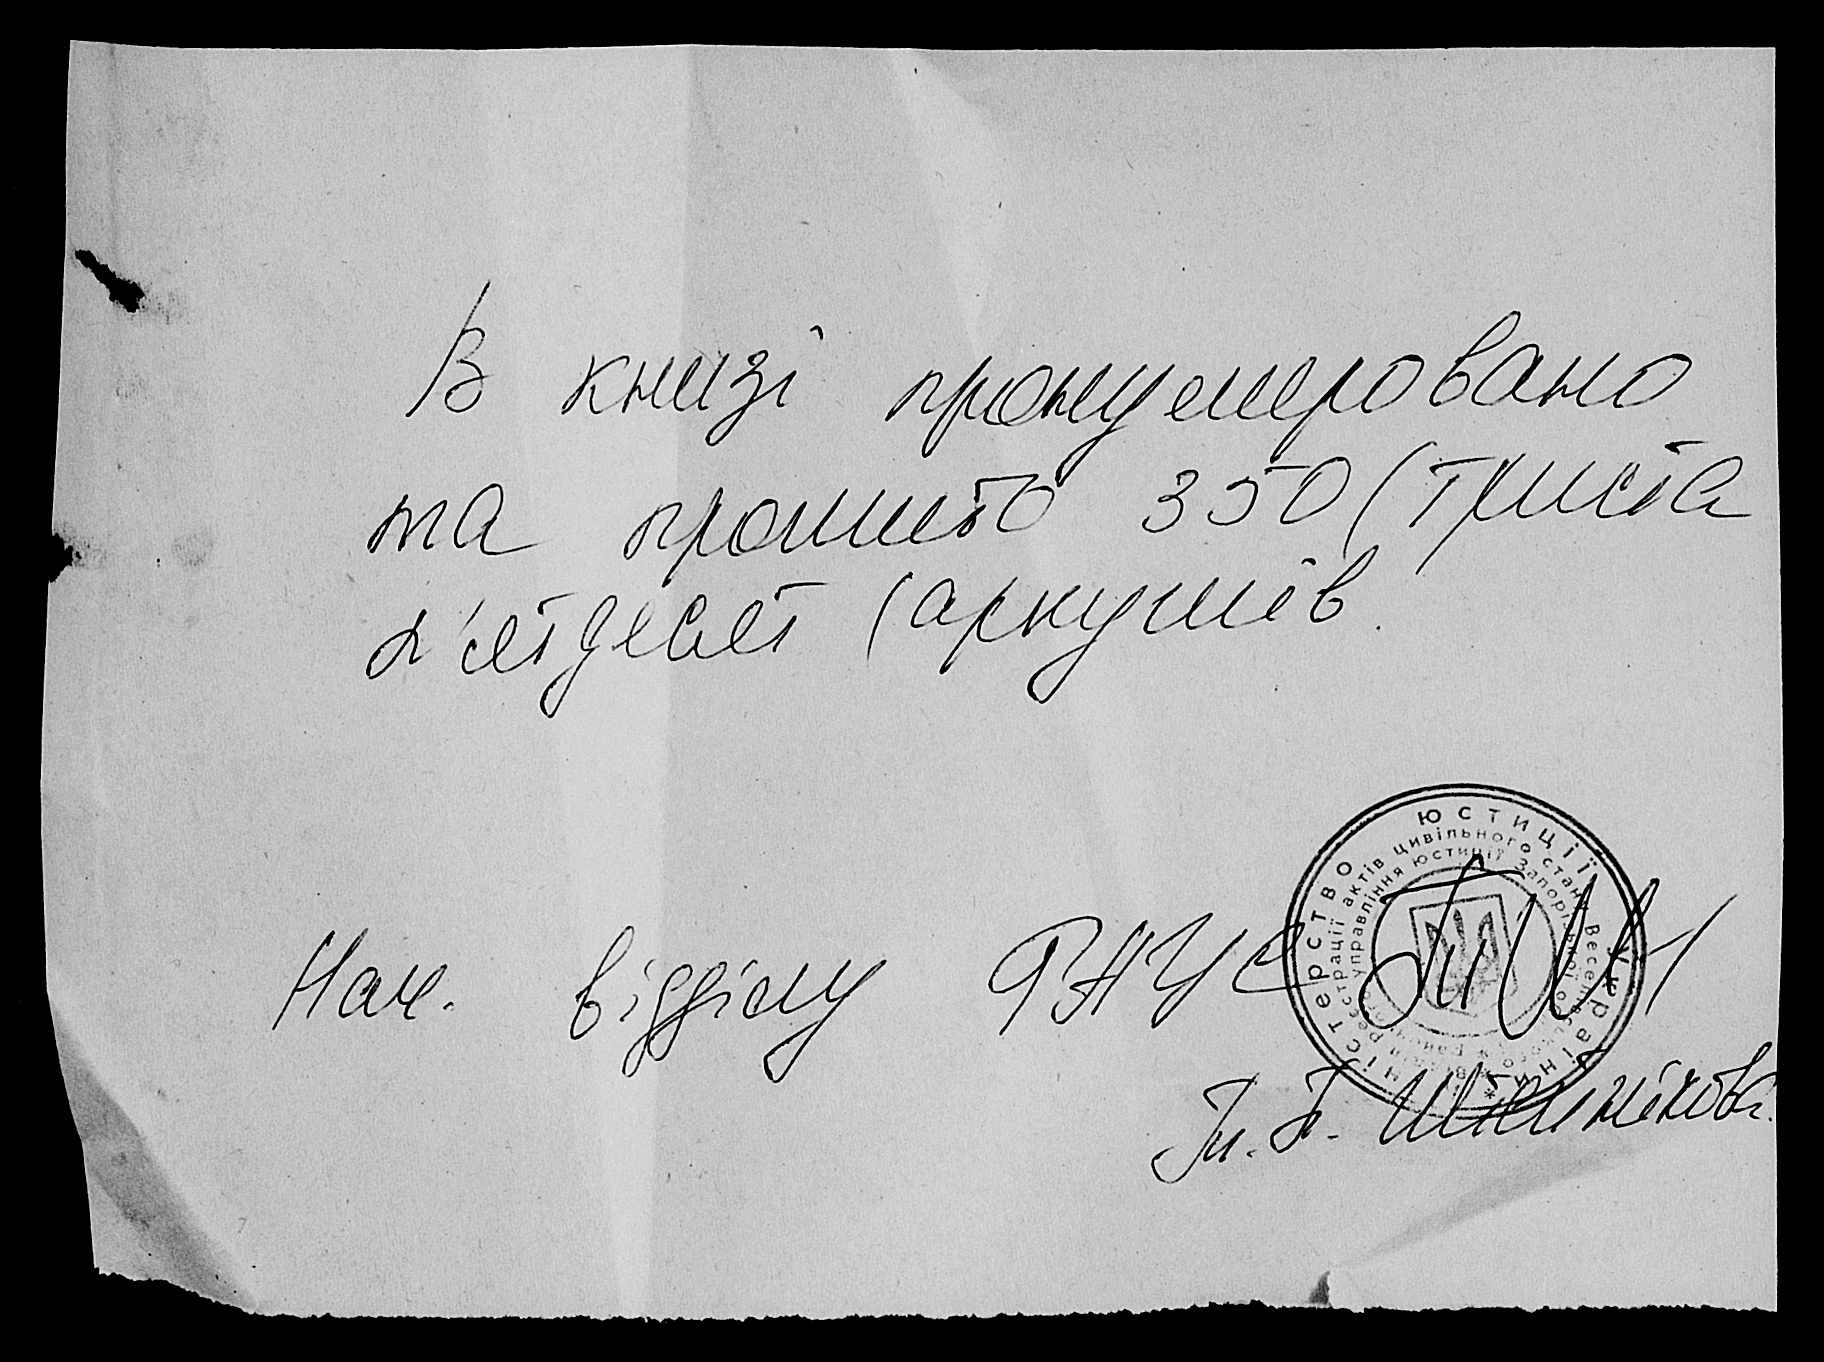 В книзі пронумеровано
та прошито 350 (триста
п'ятдесят (аркушів.
Нач. відділу РАЦС
Міністерство юстиції України *
реєстрації актів цивільного стану Веселівського
управління юстиції Запорізької області